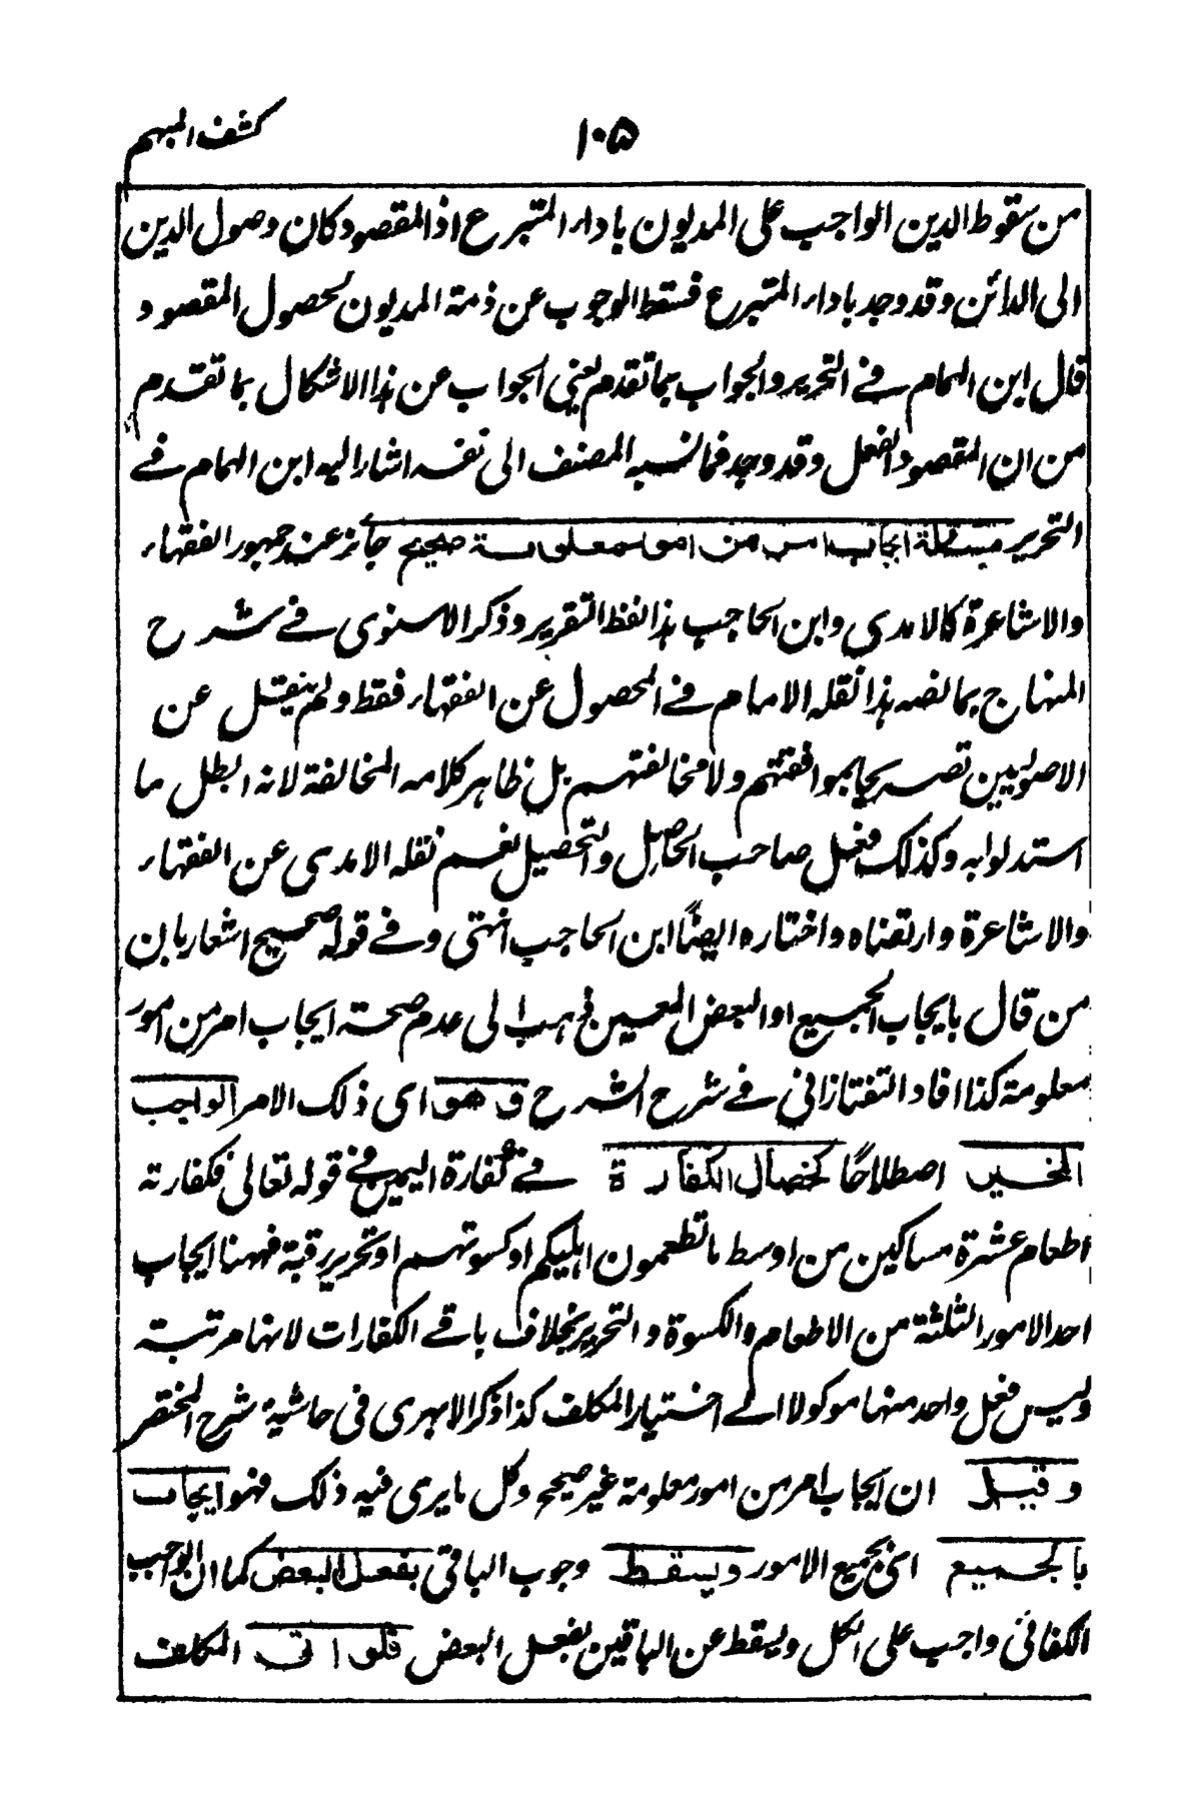 كشف المبهم
١٠٥
من سقوط الدين الواجب على المديون باداء المتبرع اذ المقصود كان وصول الدين
الى الدائن وقد وجد باداء المتبرع فسقط الوجوب عن ذمة المديون لحصول المقصود
قال ابن الهمام في التحرير والجواب بما تقدم يعني الجواب عن هذا الاشكال بما تقدم
من ان المقصود الفعل وقد وجد فما نسبه المصنف الى نفسه اشار اليه ابن الهمام في
التحرير مسئلة ايجاب امر من امور معلومة صحيح جائز عند جمهور الفقهاء
والاشاعرة كالامدي وابن الحاجب هذا لفظ التقرير وذكر الاسنوي في شرح
المنهاج بما نصه هذا نقله الامام في المحصول عن الفقهاء فقط ولم ينقل عن
الاصوليين تصريحا بموافقتهم ولا مخالفتهم بل ظاهر كلامه المخالفة لانه ابطل ما
استدلوا به وكذلك فعل صاحب الحاصل والتحصيل نعم نقله الامدي عن الفقهاء
والاشاعرة وارتضاه واختاره ايضًا ابن الحاجب انتهى وفي قوله صحيح اشعار بان
من قال بايجاب الجميع او البعض المعين ذهب الى عدم صحة ايجاب امر من امور
معلومة كذا افاد التفتازاني في شرح الشرح وهو اي ذلك الامر الواجب
المخير اصطلاحًا كخصال الكفارة في كفارة اليمين في قوله تعالى فكفارته
اطعام عشرة مساكين من اوسط ما تطعمون اهليكم او كسوتهم او تحرير رقبة فههنا ايجاب
احد الامور الثلثة من الاطعام والكسوة والتحرير بخلاف باقي الكفارات لانها مرتبة
وليس فعل واحد منها موكولا الى اختيار المكلف كذا ذكر الابهري في حاشية شرح المختصر
وقيل ان ايجاب امر من امور معلومة غير صحيح وكل ما يرى فيه ذلك فهو ايجاب
بالجميع اي بجميع الامور ويسقط وجوب الباقي بفعل البعض كما ان الواجب
الكفائي واجب على الكل ويسقط عن الباقين بفعل البعض فلو اتى المكلف